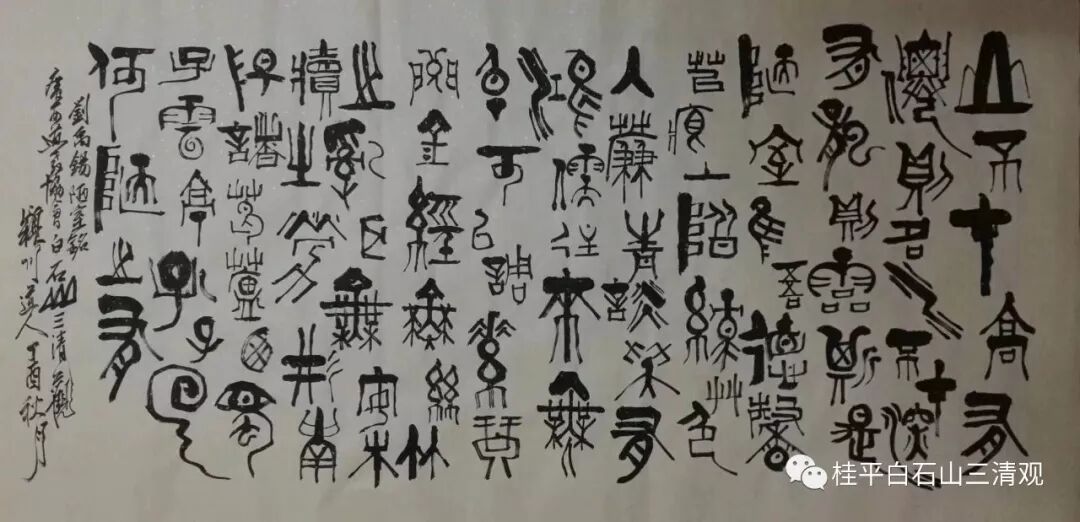 山不才高有
僊則名水不才深
有龍則靈斯是
陋室惟吾德馨
苔痕上階綠艸色
入簾青談笑有
鴻儒往來無
白丁可㠯調素琴
閱金經無絲竹
之亂耳無案
牘之勞形南
陽諸葛廬西蜀
子雲亭孔子云
何陋之有
劉禹錫陋室銘
白石山三清觀
丁酉秋月
桂平白石山三清观